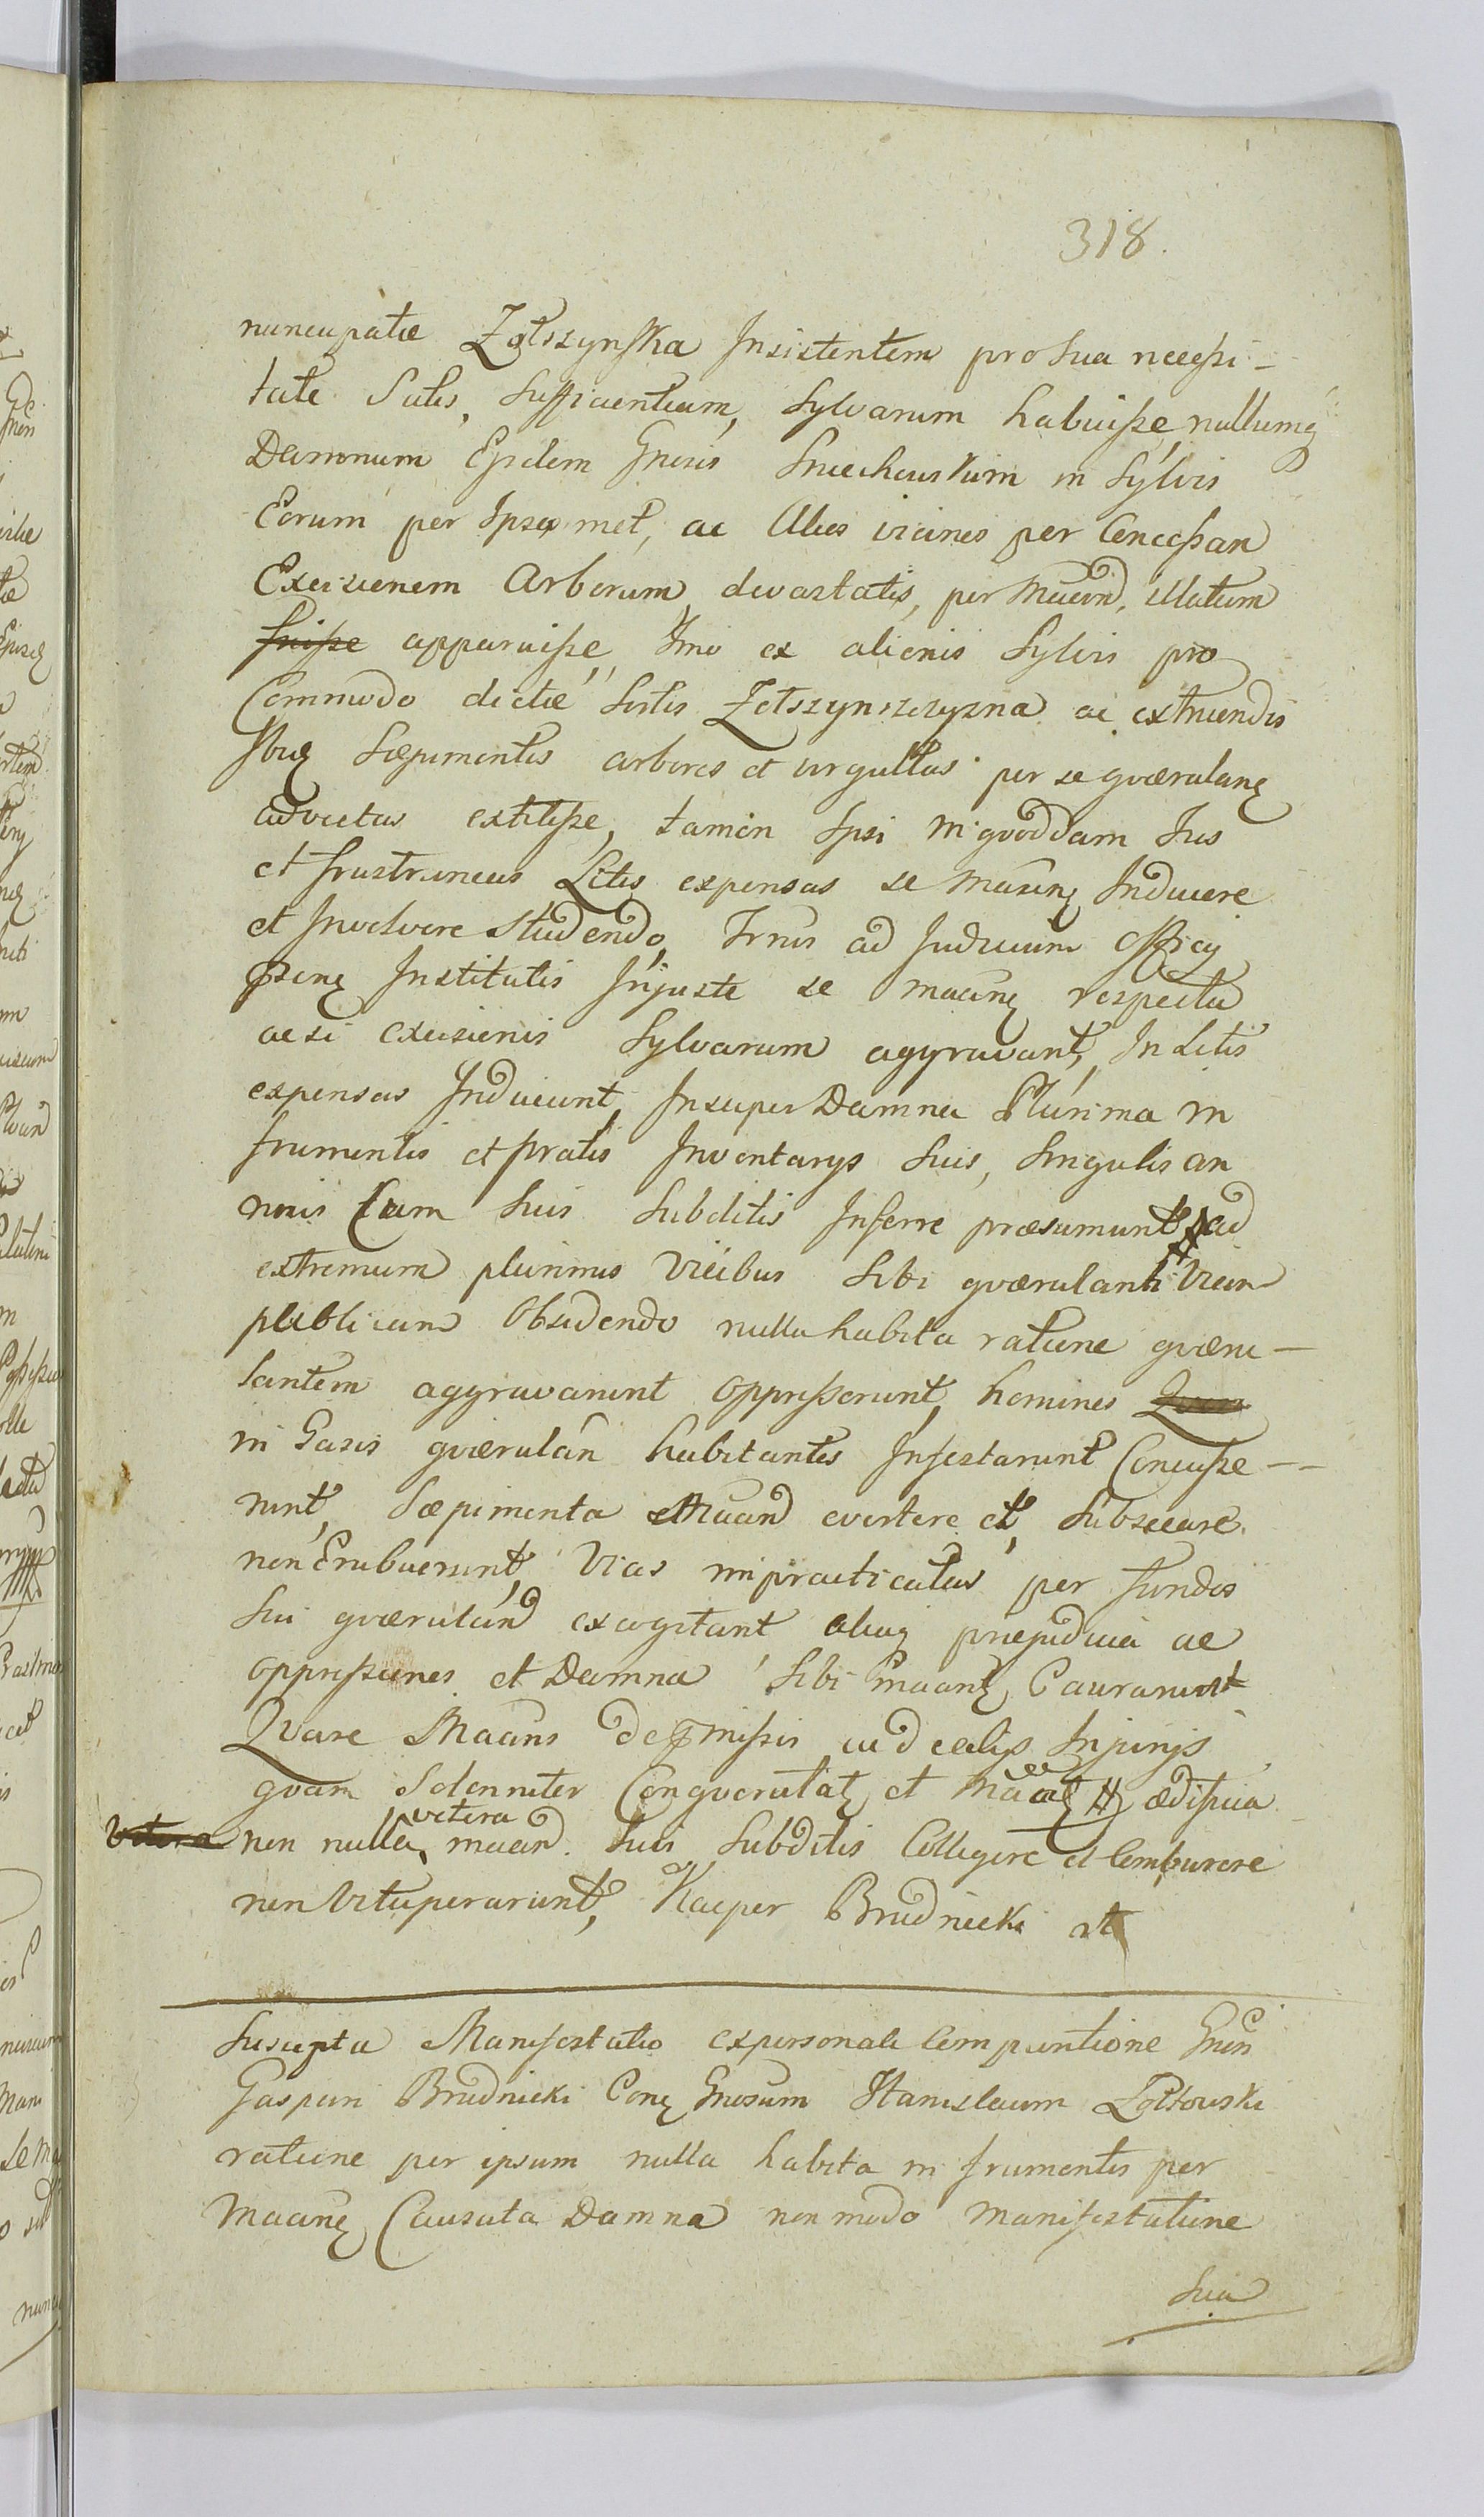 318.
nuncupatæ Zołszynska Insistentem pro sua necessi-
tate Satis, sufficientiam, Sylvarum habuisse, nullumq
Damnum Ejsdem Gnosis Sniechowskim in Sylvis
Eorum per Ipsos met, ac Alios vicinos per Concessan
Excisionem Arborum, devastatis, per Maand, illatum
fuisse apparuisse, Imo ex alienis Sylvis pro
Commodo dictæ Sortis Zołszynszczyzna ac extruendis
Ibiq Sæpimentis arbores et virgultas per se qværulanq
advectas extitisse, tamen Ipsi in qvoddam Jus
et frustraneas Litis expensas se Manenq Inducere
et Involvere Studendo, Trnis ad Judicium Officy
psenq Institutis Injuste se maanq respectu
acsi excisionis Sylvarum aggravant, In Litis
expensas Inducunt, Insuper Damna Plurima in
frumentis et pratis Inventarys suis, singulis an
nuis cum suis Subditis Inferre præsumunt, ad
extremum plurimis vicibus sibi qværulanti Viam
publicam Obsidendo nulla habita ratione qværu-
lantem aggravarunt oppresserunt, homines
in Gazis qværulan habitantes Infestarunt Concusse-
runt, Sæpimenta Maand evertere et, subsecare
non Erubuerunt, Vias impracticatas per fundos
sui qværuland excogitant aliaq præjudicia ac
oppressiones et Damna sibi maanq Causarunt
Qvare Maans de præmissis ad ealis Injurijs
qvam Solenniter Conqverulatq et Maatq # ædificia
Vetera non nulla vetera maand. suis Subditis Colligere et Comburere
non Vituperarunt, Kacper Brudnicki mp
Suscepta Manifestatio ex personali Comparitione Gnosi
Gaspari Brudnicki Conq Gnosum Stanislaum Zołtowski
ratione per ipsum nulla habita in frumentis per
Maanq Causata Damna non modo Manifestatione
sua